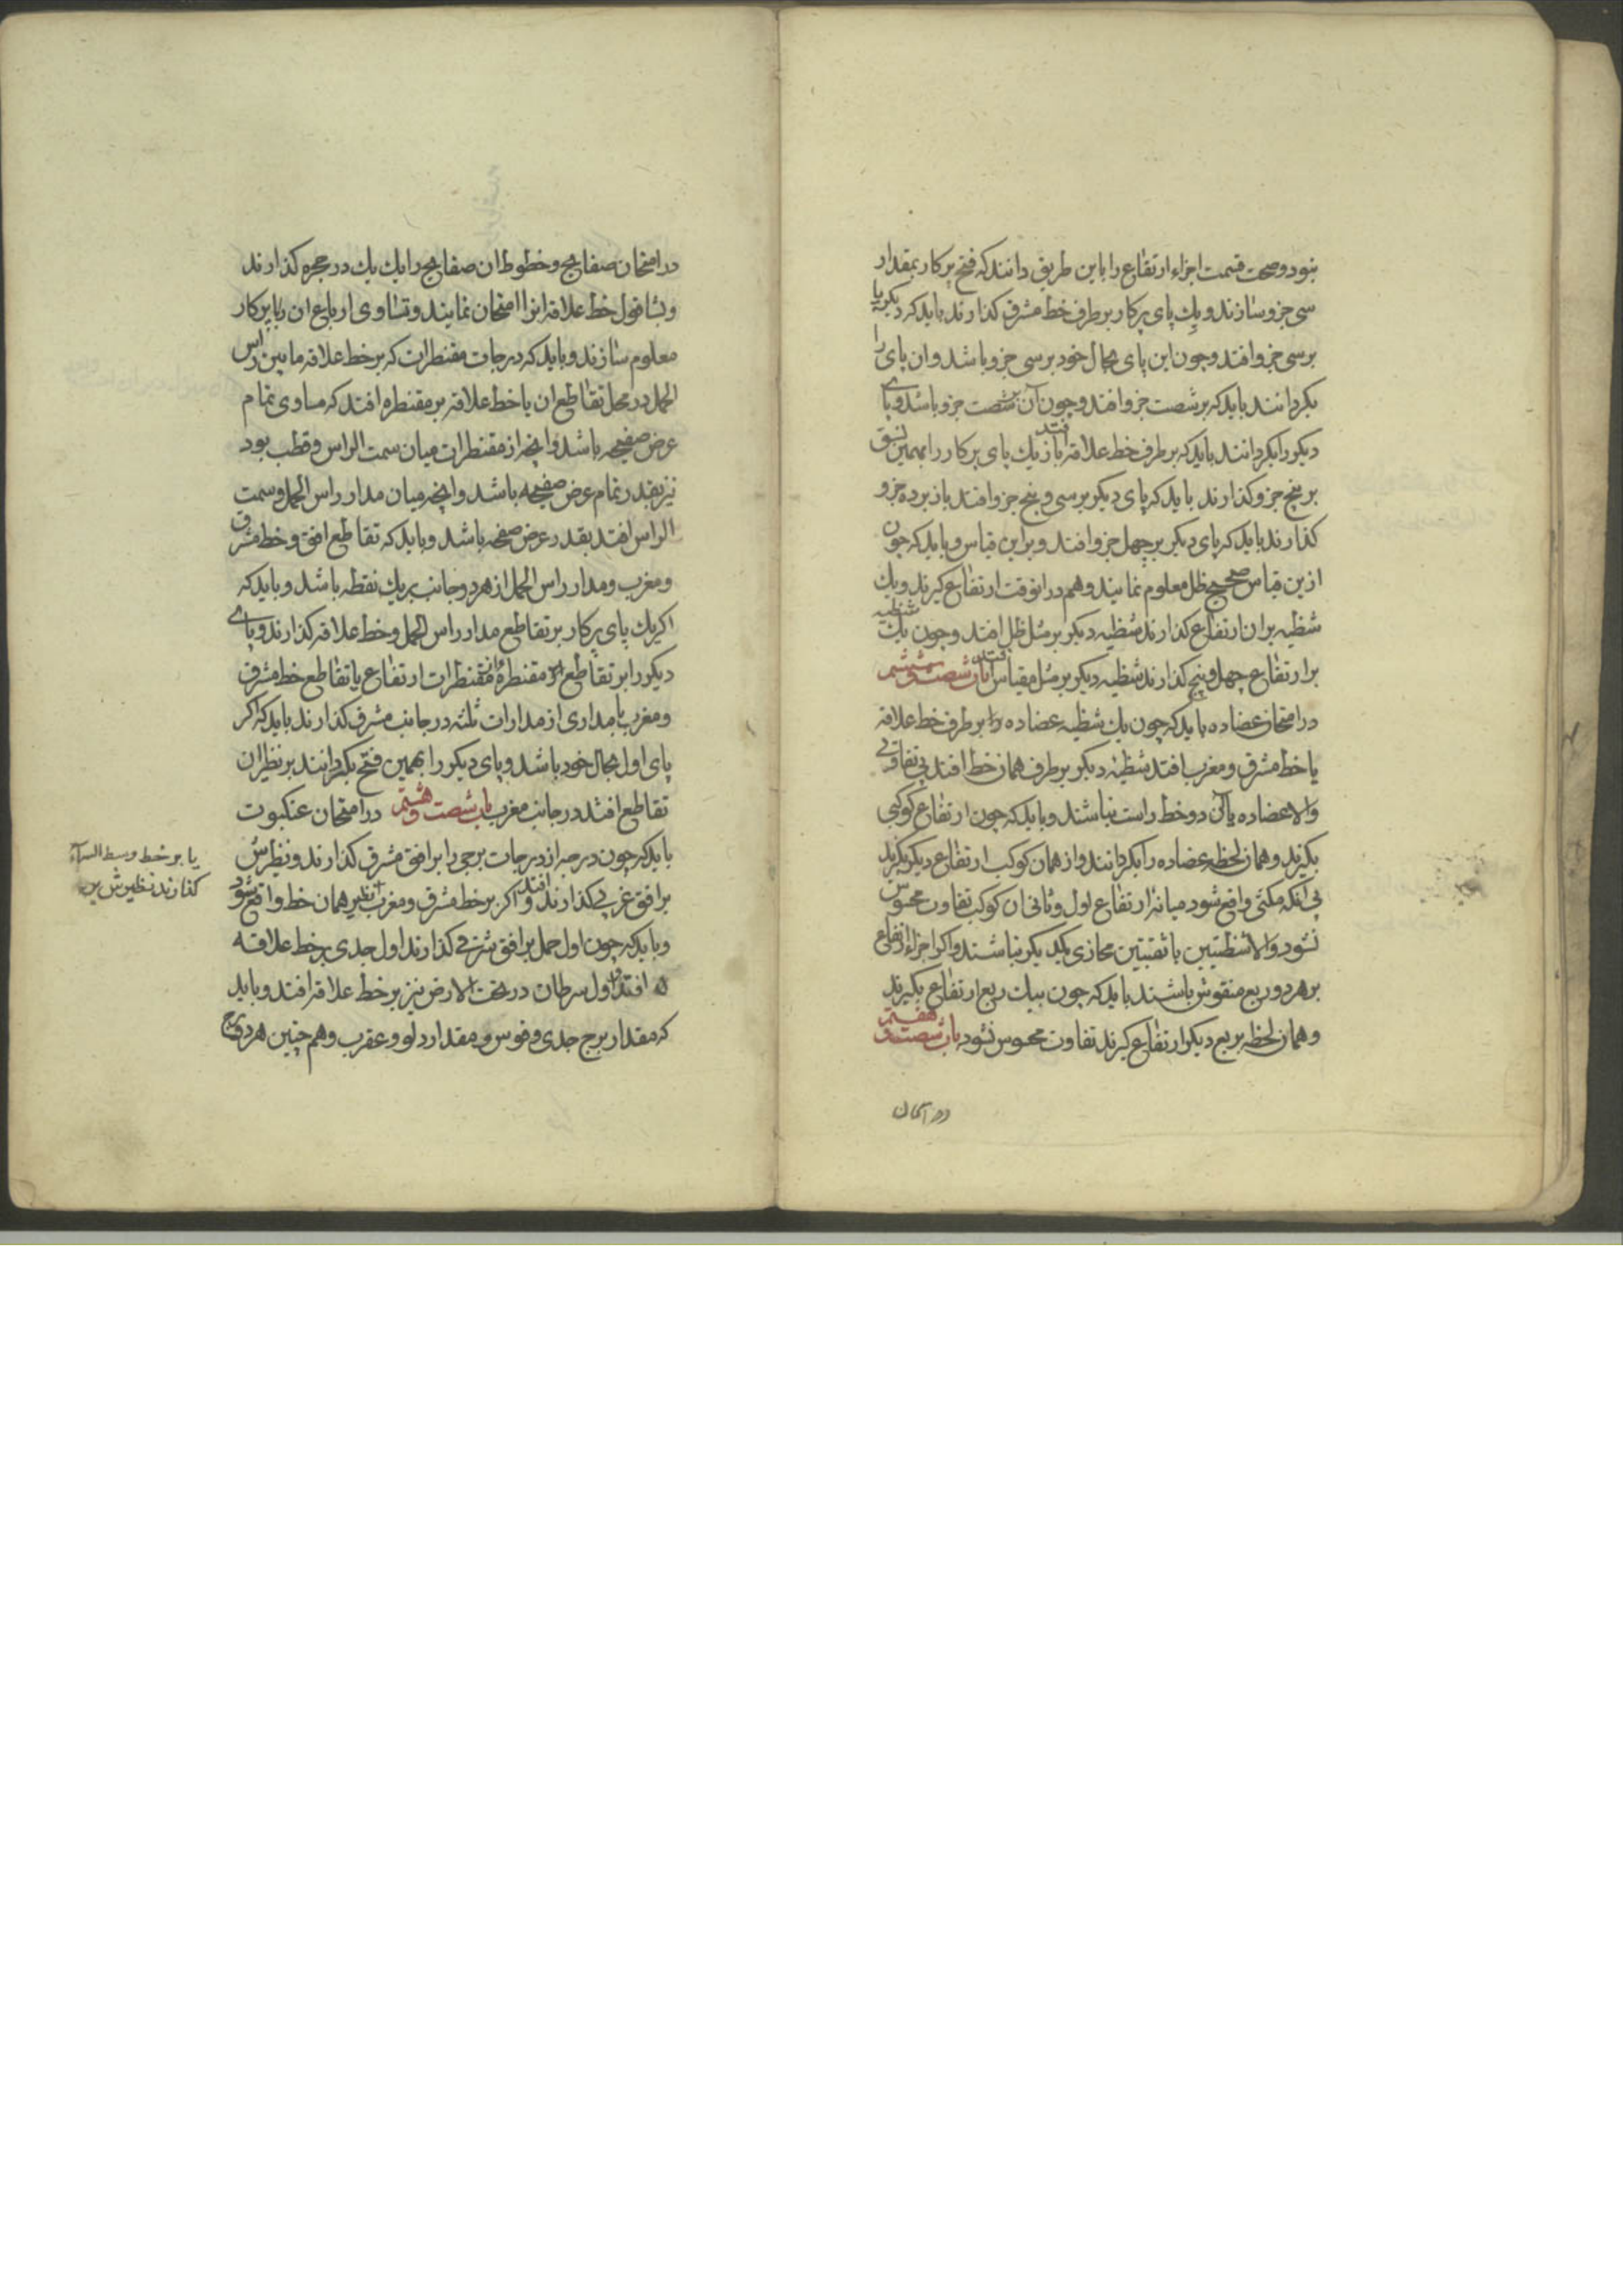 نبود و صحت قسمت اجزاء ارتفاع را باین طریق دانند که فتح پرکار بمقدار
سی جزو سازند و یک پای پرکار بر طرف خط مشرق کذارند باید که دیکر پا
بر سی جزو افتد و چون این پای بحال خود بر سی جزو باشد و ان پای را
بکردانند باید که بر شصت جزو افتد و چون آن بر شصت جزو باشد و پای
دیکر را بکردانند باید که بر طرف خط علاقه افتد باز یک پای پرکار را بهمین نسق
بر پنج جزو کذارند باید که پای دیکر بر سی و پنج جزو افتد باز بر ده جزو
کذارند باید که پای دیکر بر چهل جزو افتد و بر این قیاس و باید که چون
ازین قیاس صحیح ظل معلوم نمایند و هم در انوقت ارتفاع کیرند و یک
شظیه بر ان ارتفاع کذارند شظیه دیکر بر مثل ظل افتد و چون یک شظیه
بر ارتفاع چهل و پنج کذارند شظیه دیکر بر مثل مقیاس افتد باب شصت و ششم
در امتحان عضاده باید که چون یک شظیه عضاده را بر طرف خط علاقه
یا خط مشرق و مغرب افتد شظیه دیکر بر طرف همان خط افتد بی تفاوتی
والا عضاده یا آن دو خط راست نباشند و باید که چون ارتفاع کوکبی
بکیرند و همان لحظه عضاده را بکردانند و از همان کوکب ارتفاع دیکر بکیرند
بی آنکه مکثی واقع شود میانه ارتفاع اول و ثانی ان کوکب تفاوت محسوس
نشود والا شظیتین با ثقبتین محاذی یکدیکر نباشند و اکر اجزاء ارتفاع
بر هر دو ربع منقوش باشند باید که چون بیک ربع ارتفاع بکیرند
و همان لحظه بربع دیکر ارتفاع کیرند تفاوت محسوس نشود باب شصت و هفتم
در امتحان
در امتحان صفایح و خطوط ان صفایح را یک یک در حجره کذارند
و بشاقول خط علاقه انرا امتحان نمایند و تساوی ارباع ان را بپرکار
معلوم سازند و باید که درجات مقنطرات که بر خط علاقه مابین راس
الحمل در محل تقاطع ان با خط علاقه بر مقنطره افتد که مساوی تمام
عرض صفیحه باشد و انچه از مقنطرات میان سمت الراس و قطب بود
نیز بقدر تمام عرض صفیحه باشد و انچه میان مدار راس الحمل و سمت
الراس افتد بقدر عرض صفحه باشد و باید که تقاطع افق و خط مشرق
و مغرب و مدار راس الحمل از هر دو جانب بر یک نقطه باشد و باید که
اکر یک پای پرکار بر تقاطع مدار راس الحمل و خط علاقه کذارند و پای
دیکر را بر تقاطع مقنطره از مقنطرات ارتفاع یا تقاطع خط مشرق
و مغرب با مداری از مدارات ثلثه در جانب مشرق کذارند باید که اکر
پای اول بحال خود باشد و پای دیکر را بهمین فتح بکردانند بر نظیر ان
تقاطع افتد در جانب مغرب باب شصت و هشتم در امتحان عنکبوت
باید که چون درجه از درجات برجی را بر افق مشرق کذارند و نظیرش
بر افق غربی کذارند افتد و اکر بر خط مشرق و مغرب نظیر همان خط واقع شود
و باید که چون اول حمل بر افق شرقی کذارند اول جدی بر خط علاقه
افتد و اول سرطان در تحت الارض نیز بر خط علاقه افتد و باید
که مقدار برج جدی و قوس و مقدار دلو و عقرب و هم چنین هر دو برج
یا بر خط وسط السماء
کذارند نظیرش بر